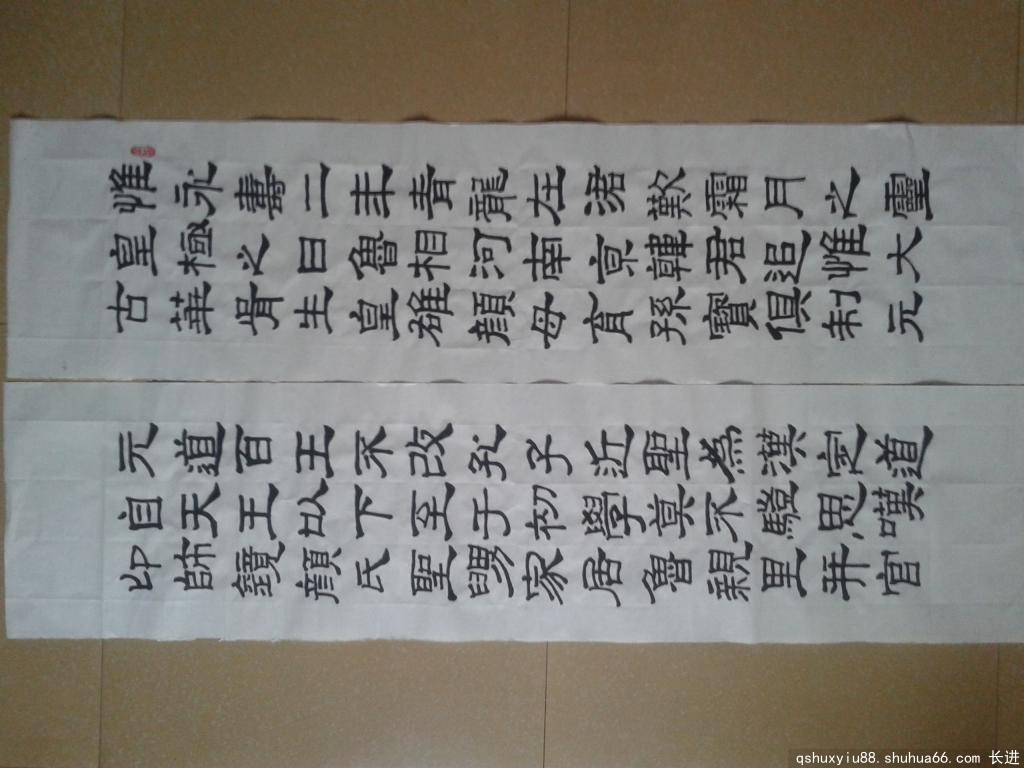 惟永壽二年青龍在涒歎霜月之靈
皇極之日魯相河南京韓君追惟大
古華胥生皇雄顏母育孫寶俱制元
元道百王不改孔子近聖為漢定道
自天王以下至于初學莫不思嘆
卬師鏡顏氏聖舅家居魯親里并官
qshuxyiu88.shuhua66.com 长进